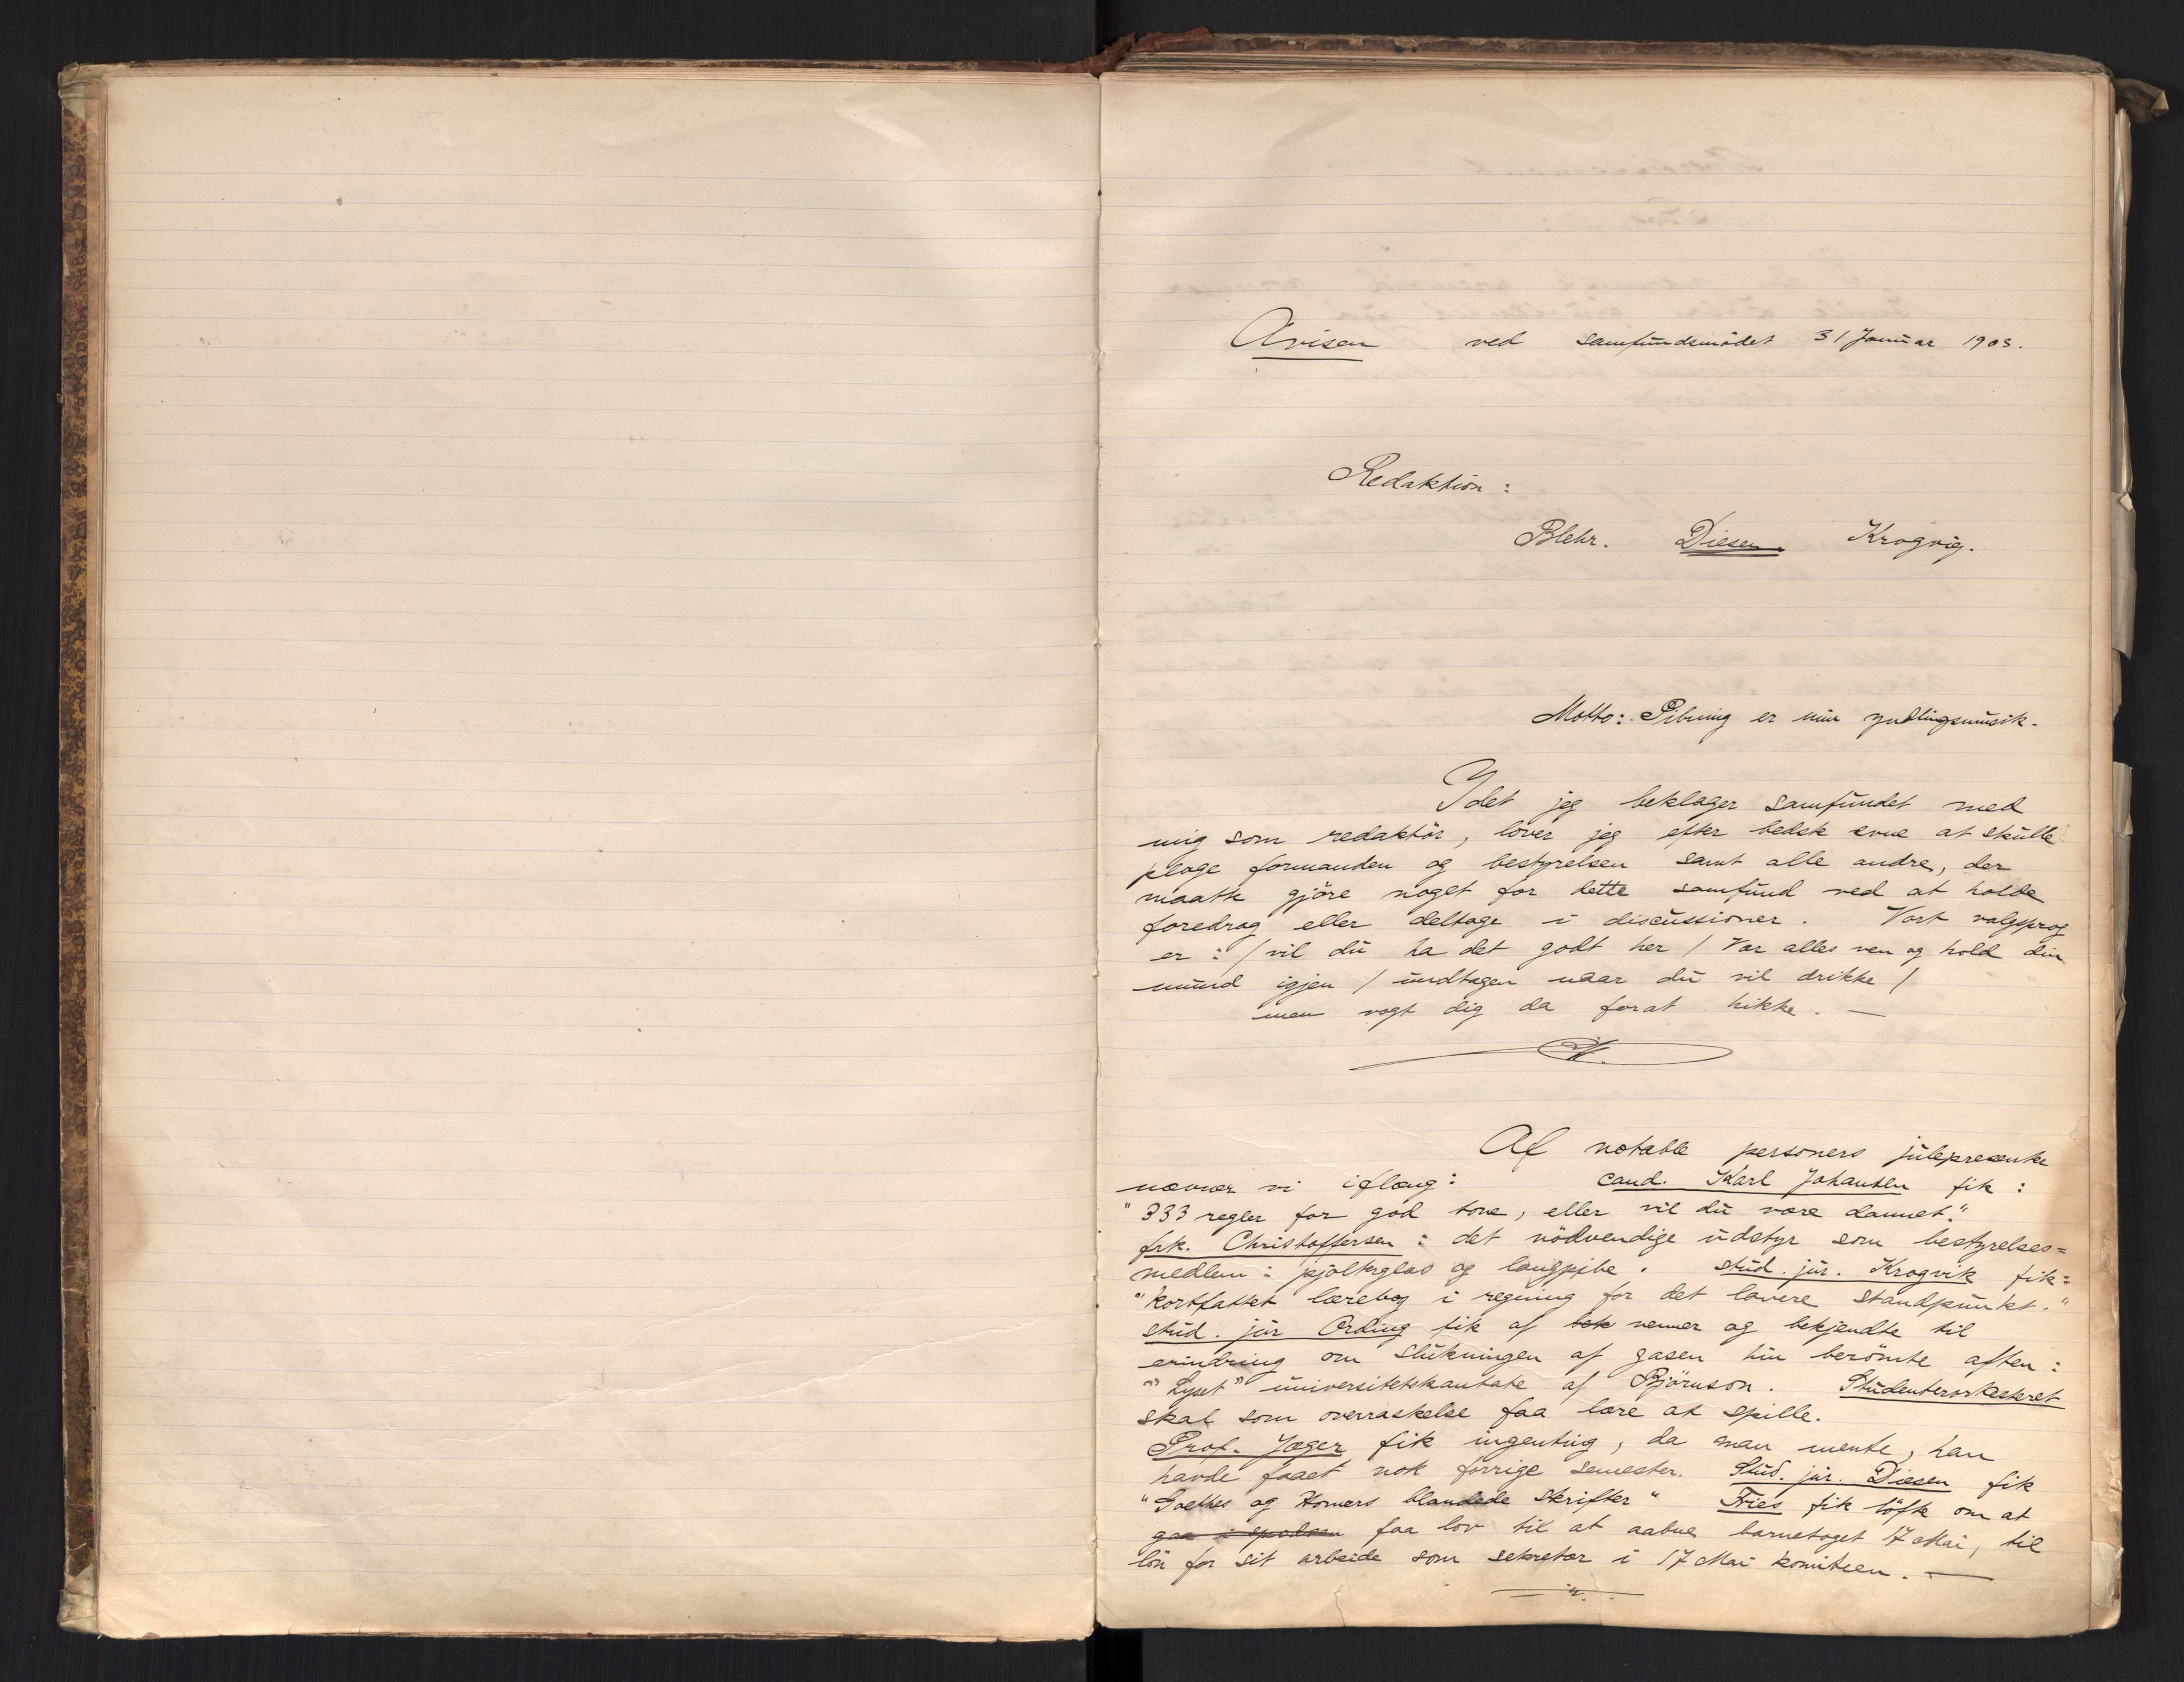 Avisen ved samfundsmödet 31 Januar 1903.
Redaktion:
Blehr. Diesen. Krogvig.
Motto: Pibning er min yndlingsmusik.
Idet jeg beklager samfundet med
mig som redaktör, lover jeg efter bedste evne at skulle
plage formanden og bestyrelsen samt alle andre, der
maatte gjöre noget for dette samfund ved at holde
foredrag eller deltage i discussioner. Vort valgsprog
er: / vil du ha det godt her / Vær alles ven og hold din
mund igjen / undtagen naar du vil drikke /
men vogt dig da forat hikke. —
Af notable personers julepresenter
nævner vi iflæng: cand. Karl Johansen fik:
"333 regler for god tone, eller vil du være dannet."
frk. Christoffersen: det nödvendige udstyr som bestyrelses=
medlem: pjolterglas og langpibe. stud. jur. Krogvik fik:
"kortfattet lærebog i regning for det lavere standpunkt."
stud. jur Ording fik af bek venner og bekjendte til
erindring om slukningen af gasen hin berömte aften:
"Lyset" universitetskantate af Björnson. Studenterorkesteret
skal som overraskelse faa lære at spille.
Prof. Jæger fik ingenting, da man mente, han
havde faaet nok forrige semester. Stud. jur. Diesen fik
"Goethes og Homers blandede skrifter" Fries fik löfte om at
gaa i spidsen faa lov til at aabne barnetoget 17 Mai, til
lön for sit arbeide som sekretær i 17 Mai komiteen. —